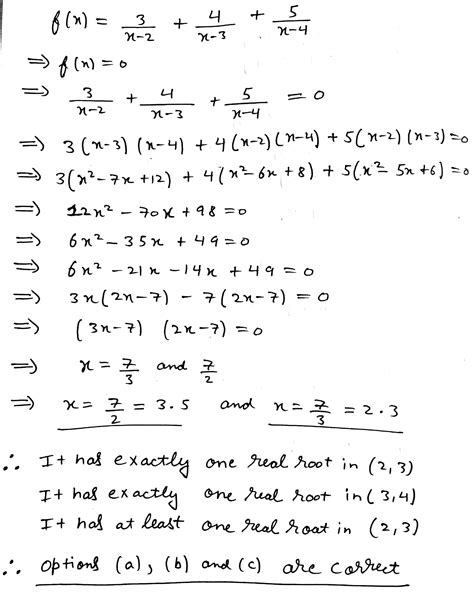 f(x) = 3/(x-2) + 4/(x-3) + 5/(x-4)
⇒ f(x) = 0
⇒ 3/(x-2) + 4/(x-3) + 5/(x-4) = 0
⇒ 3(x-3)(x-4) + 4(x-2)(x-4) + 5(x-2)(x-3)=0
⇒ 3(x²-7x+12) + 4(x²-6x+8) + 5(x²-5x+6)=0
⇒ 12x² - 70x + 98 = 0
⇒ 6x² - 35x + 49 = 0
⇒ 6x² - 21x - 14x + 49 = 0
⇒ 3x(2x-7) - 7(2x-7) = 0
⇒ (3x-7) (2x-7) = 0
⇒ x = 7/3 and 7/2
⇒ x = 7/2 = 3.5 and x = 7/3 = 2.3
∴ It has exactly one real root in (2,3)
It has exactly one real root in (3,4)
It has at least one real roat in (2,3)
∴ options (a), (b) and (c) are correct